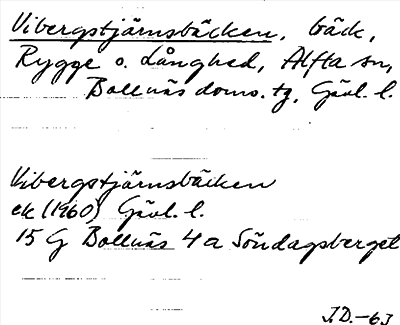 Vibergstjärnsbäcken, bäck,
Rygge o. Långhed, Alfta sn,
Bollnäs doms. tg, Gävl. l.
Vibergstjärnsbäcken
ek (1960) Gävl. l.
15 G Bollnäs 4a Söndagsberget
J.D.-63